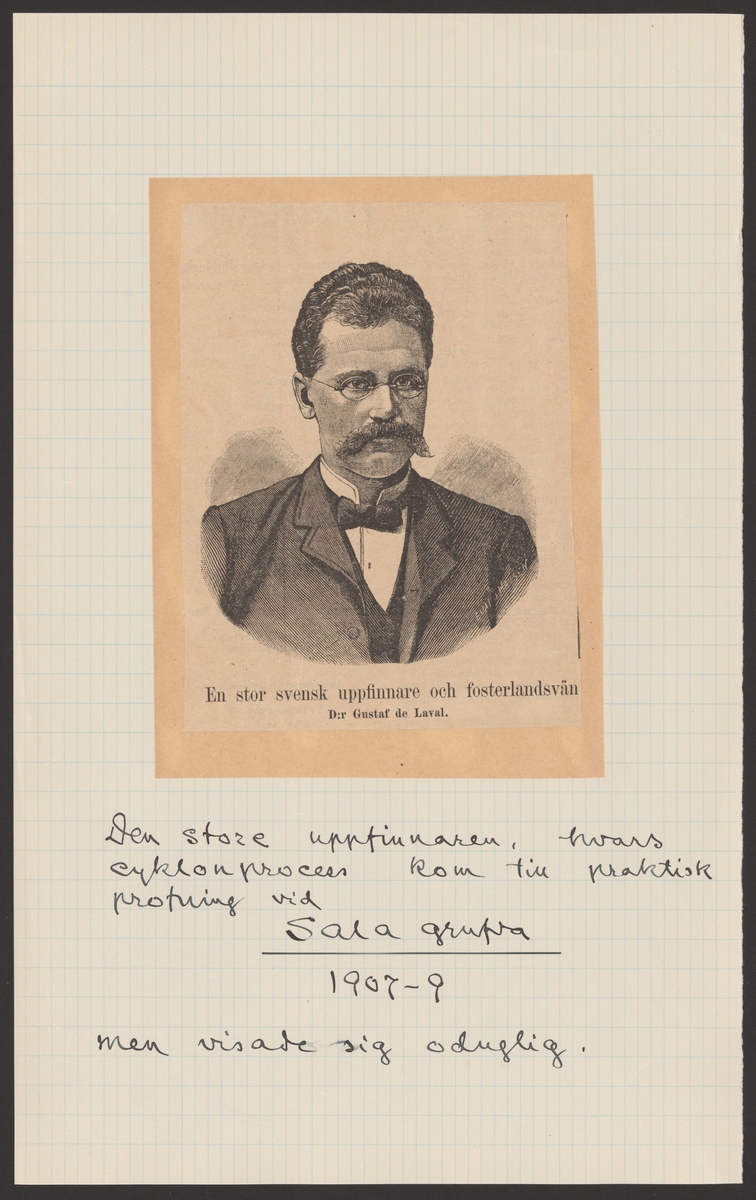 En stor svensk uppfinnare och fosterlandsvän
D:r Gustaf de Laval.
Den store uppfinnaren, hvars
cyklonprocess kom till praktisk
profning vid
Sala grufva
1907-9
men visade sig oduglig.